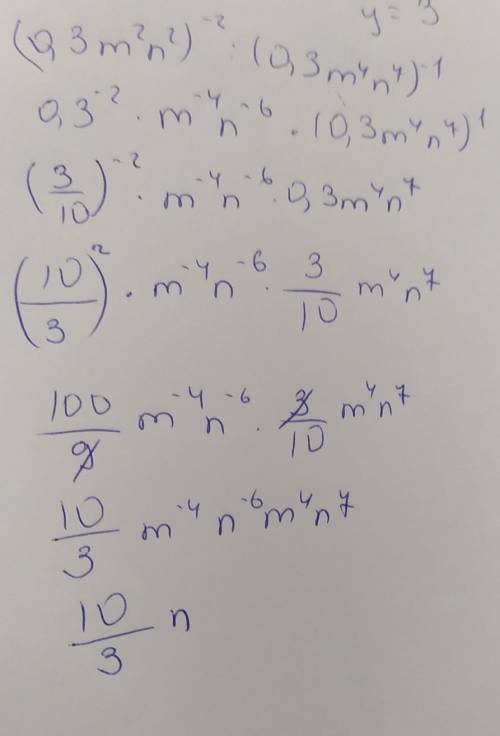 y = 3
(0,3m²n²)⁻² : (0,3m⁴n⁷)⁻¹
0,3⁻² · m⁻⁴n⁻⁶ · (0,3m⁴n⁷)¹
(3/10)⁻² · m⁻⁴n⁻⁶ · 0,3m⁴n⁷
(10/3)² · m⁻⁴n⁻⁶ · 3/10 m⁴n⁷
100/9 m⁻⁴n⁻⁶ · 3/10 m⁴n⁷
10/3 m⁻⁴ n⁻⁶m⁴n⁷
10/3 n